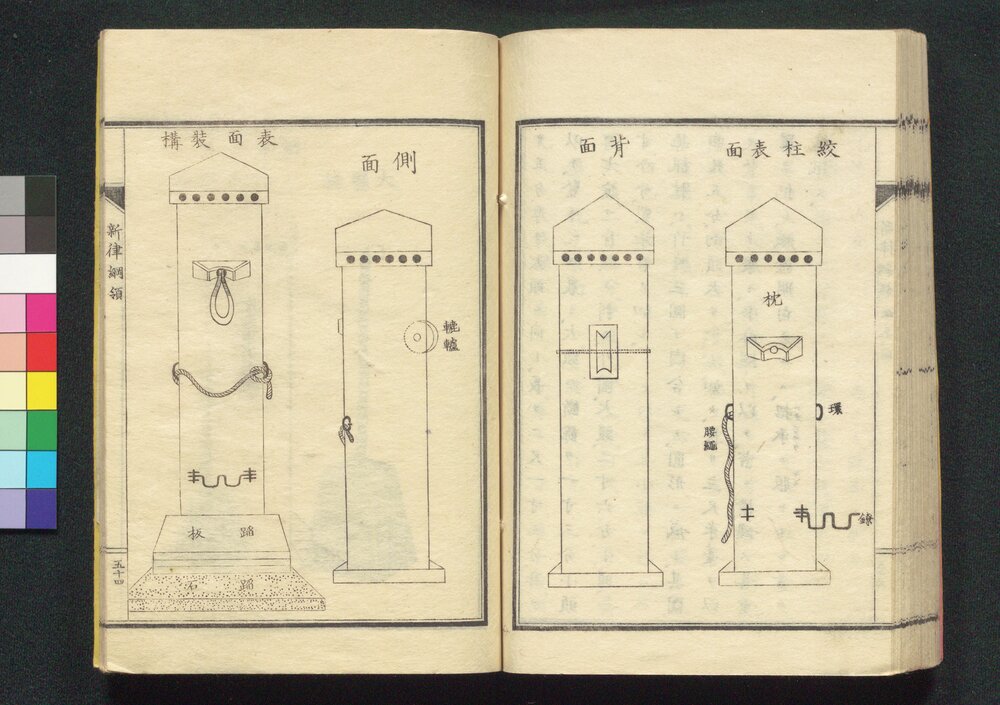 絞柱表面
枕
環
腰繩
鐐
背面
側面
轆轤
表面裝構
蹈板
蹈石
新律綱領
五十四